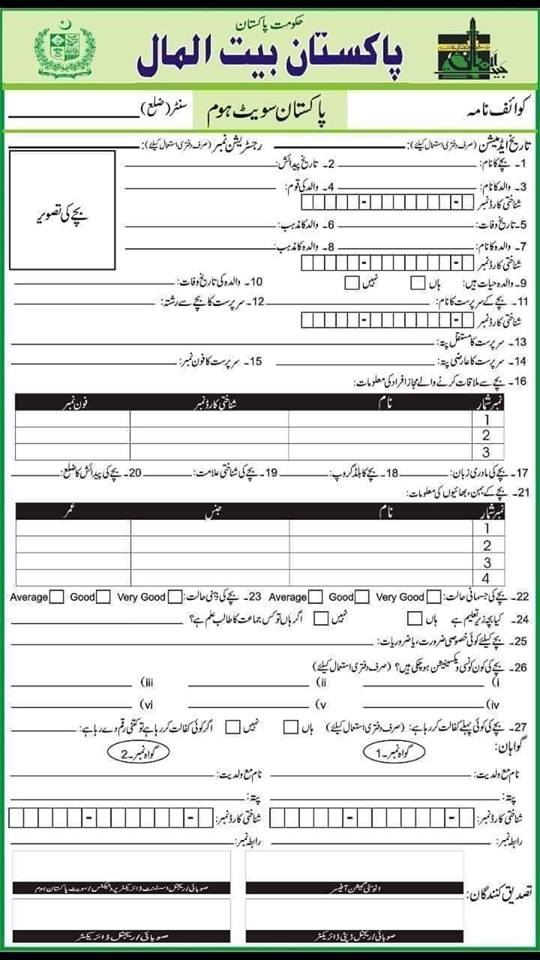 حکومت پاکستان
پاکستان بیت المال
کوائف نامہ
پاکستان سویٹ ہوم
سنٹر (ضلع)
تاریخ ایڈمیشن (صرف دفتری استعمال کیلئے): رجسٹریشن نمبر (صرف دفتری استعمال کیلئے):
بچے کی تصویر
1- بچے کا نام: 2- تاریخ پیدائش:
3- والد کا نام: 4- والد کی قوم:
شناختی کارڈ نمبر
5- تاریخ وفات: 6- والد کا مذہب:
7- والدہ کا نام: 8- والدہ کا مذہب:
شناختی کارڈ نمبر
9- والدہ حیات ہیں: ہاں نہیں 10- والدہ کی تاریخ وفات:
11- بچے کے سرپرست کا نام: 12- سرپرست کا بچے سے رشتہ:
شناختی کارڈ نمبر
13- سرپرست کا مستقل پتہ:
14- سرپرست کا عارضی پتہ: 15- سرپرست کا فون نمبر:
16- بچے سے ملاقات کرنے والے مجاز افراد کی معلومات:
نمبر شمار نام شناختی کارڈ نمبر فون نمبر
1
2
3
17- بچے کی مادری زبان: 18- بچے کا بلڈ گروپ: 19- بچے کی شناختی علامت: 20- بچے کی پیدائش کا ضلع:
21- بچے کے بہن، بھائیوں کی معلومات:
نمبر شمار نام جنس عمر
1
2
3
4
22- بچے کی جسمانی حالت: Very Good Good Average 23- بچے کی ذہنی حالت: Very Good Good Average
24- کیا بچہ زیر تعلیم ہے ہاں نہیں اگر ہاں تو کس جماعت کا طالب علم ہے؟
25- بچے کیلئے کوئی خصوصی ضرورت، یا ضروریات:
26- بچے کی کون کونسی ویکسینیشن ہو چکی ہیں؟ (صرف دفتری استعمال کیلئے)
i) ii) iii)
iv) v) vi)
27- بچے کی کوئی پہلے کفالت کر رہا ہے: (صرف دفتری استعمال کیلئے) ہاں نہیں اگر کوئی کفالت کر رہا ہے تو کتنی رقم دے رہا ہے:
گواہان:
گواہ نمبر 1- گواہ نمبر 2-
نام مع ولدیت: نام مع ولدیت:
پتہ: پتہ:
شناختی کارڈ نمبر شناختی کارڈ نمبر
رابطہ نمبر: رابطہ نمبر:
تصدیق کنندگان:
انویسٹی گیشن آفیسر صوبائی/ریجنل اسسٹنٹ ڈائریکٹر پروجیکٹس/سویٹ پاکستان ہوم
صوبائی/ریجنل ڈپٹی ڈائریکٹر صوبائی/ریجنل ڈائریکٹر